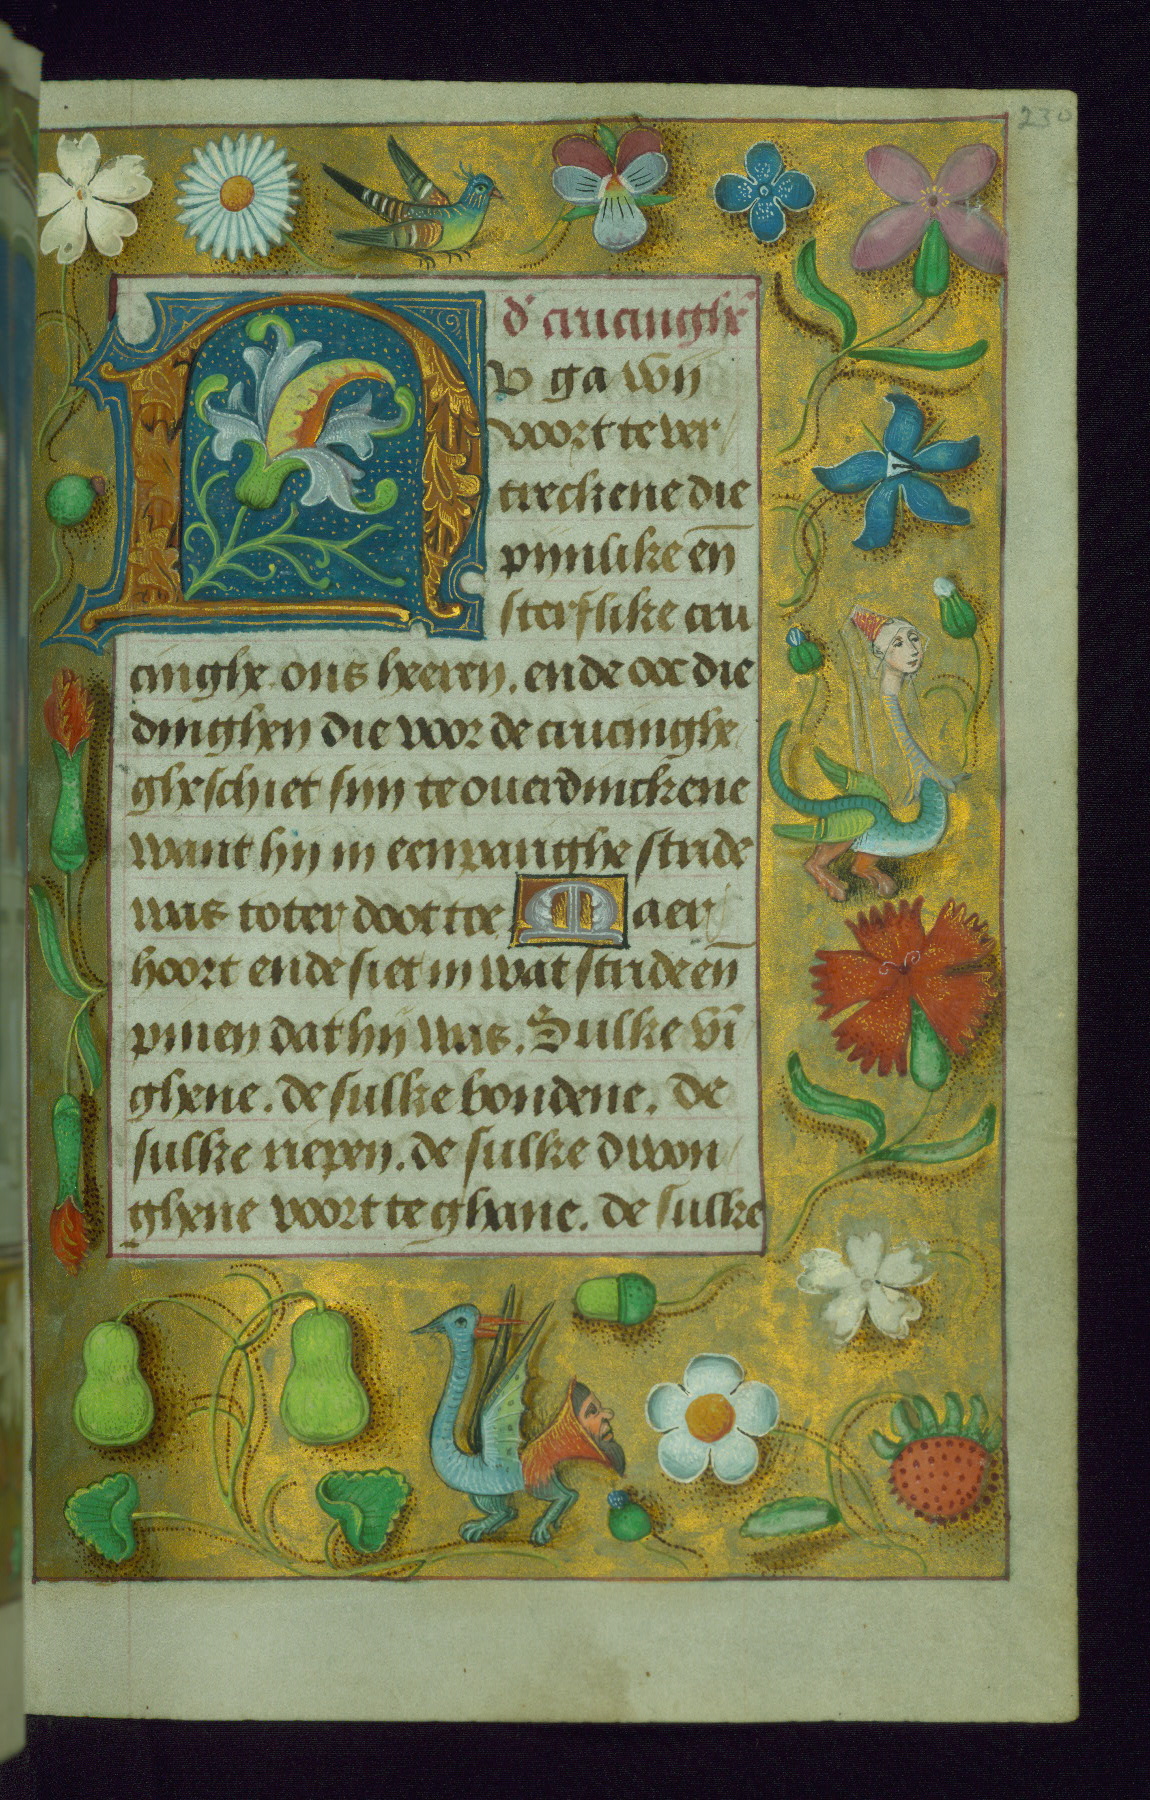 230
d' crucinghe
Nv ga wij
voort te ver
treckene die
pijnlike en̄
sterflike cru
cinghe ons heeren, ende oec die
dinghen die voor de crucinghe
gheschiet sijn te ouerdinckene
want hij in een panighe stride
was toter doot toe Maer
hoort ende siet in wat stride en
pinen dat hij was. Sulke vī
ghene. de sulke bondene. de
sulke riepen. de sulke dwon
ghene voort te ghane. de sulke